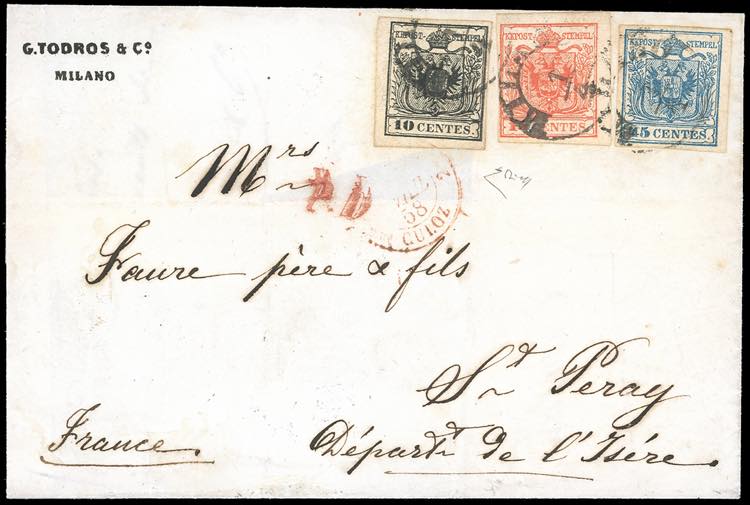 G. TODROS & Cº
MILANO
KKPOST-STEMPEL
10 CENTES.
KKPOST-STEMPEL
CENTES.
KKPOST-STEMPEL
45 CENTES.
Mrs
P.D.
58
CULOZ
Faure père & fils
St Peray
France.
Départt de l'Isére.